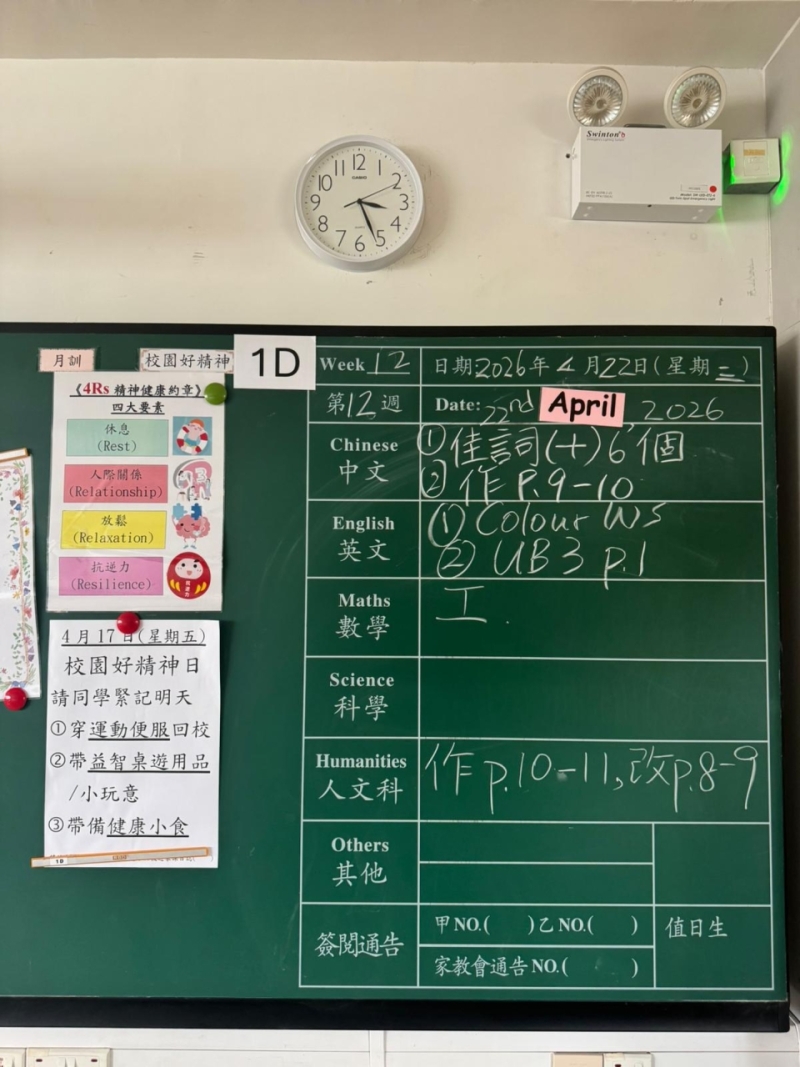 12 1 2 3 4 5 6 7 8 9 10 11
CASIO
Swinton
月訓
校園好精神
1D
《4Rs 精神健康約章》
四大要素
休息
(Rest)
人際關係
(Relationship)
放鬆
(Relaxation)
抗逆力
(Resilience)
4月17日(星期五)
校園好精神日
請同學緊記明天
①穿運動便服回校
②帶益智桌遊用品
/小玩意
③帶備健康小食
1D
Week 12
日期2026年4月22日(星期三)
第12週
Date: 22nd April 2026
Chinese
中文
①佳詞(十)6個
②作P.9-10
English
英文
① Colour WS
② UB3 p.1
Maths
數學
工.
Science
科學
Humanities
人文科
作p.10-11,改p.8-9
Others
其他
簽閱通告
甲NO.( )乙NO.( )
家教會通告NO.( )
值日生